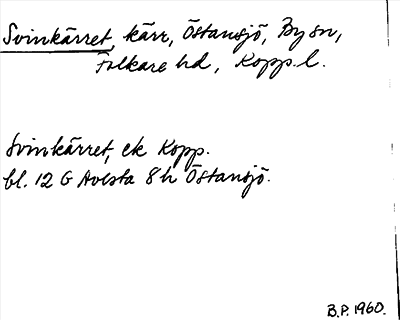 Svinkärret, kärr, Östansjö, By sn,
Folkare hd, Kopp. l.
Svinkärret, ek Kopp.
bl. 12 G Avesta 8 h Östansjö.
B.P. 1960.